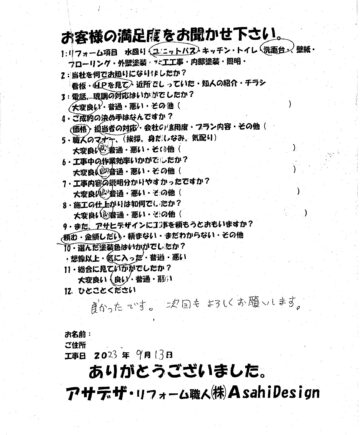 お客様の満足度をお聞かせ下さい。
1:リフォーム項目 水廻り ユニットバス・キッチン・トイレ・洗面台・壁紙・
フローリング・外壁塗装・大工工事・内部塗装・照明・
2:当社を何でお知りになりましたか?
看板・HPを見て・近所でしていた・知人の紹介・チラシ
3:電話、現場の対応はいかがでしたか?
大変良い・普通・悪い・その他( )
4:ご成約の決め手はなんですか?
価格・担当者の対応・会社の信用度・プラン内容・その他( )
5・職人のマナー、(挨拶、身だしなみ、気配り)
大変良い・普通・悪い・その他( )
6・工事中の作業効率いかがでしたか?
大変良い・普通・悪い・その他( )
7・工事内容の説明分かりやすかったですか?
大変良い・普通・悪い・その他( )
8・施工の仕上がりは如何でしたか?
大変良い・普通・悪い・その他( )
9・また、アサデザインに工事を頼もうとおもいますか?
頼む・金額しだい・頼まない・まだわからない・その他
10・選んだ塗装色はいかがでしたか?
・想像以上・気に入った・普通・悪い
11・総合に見ていかがでしたか?
大変良い・良い・普通・悪い
12、ひとことください
良かったです。次回も よろしくお願いします。
お名前:
ご住所
工事日 2023年 9月13日
ありがとうございました。
アサデザ・リフォーム職人㈱AsahiDesign